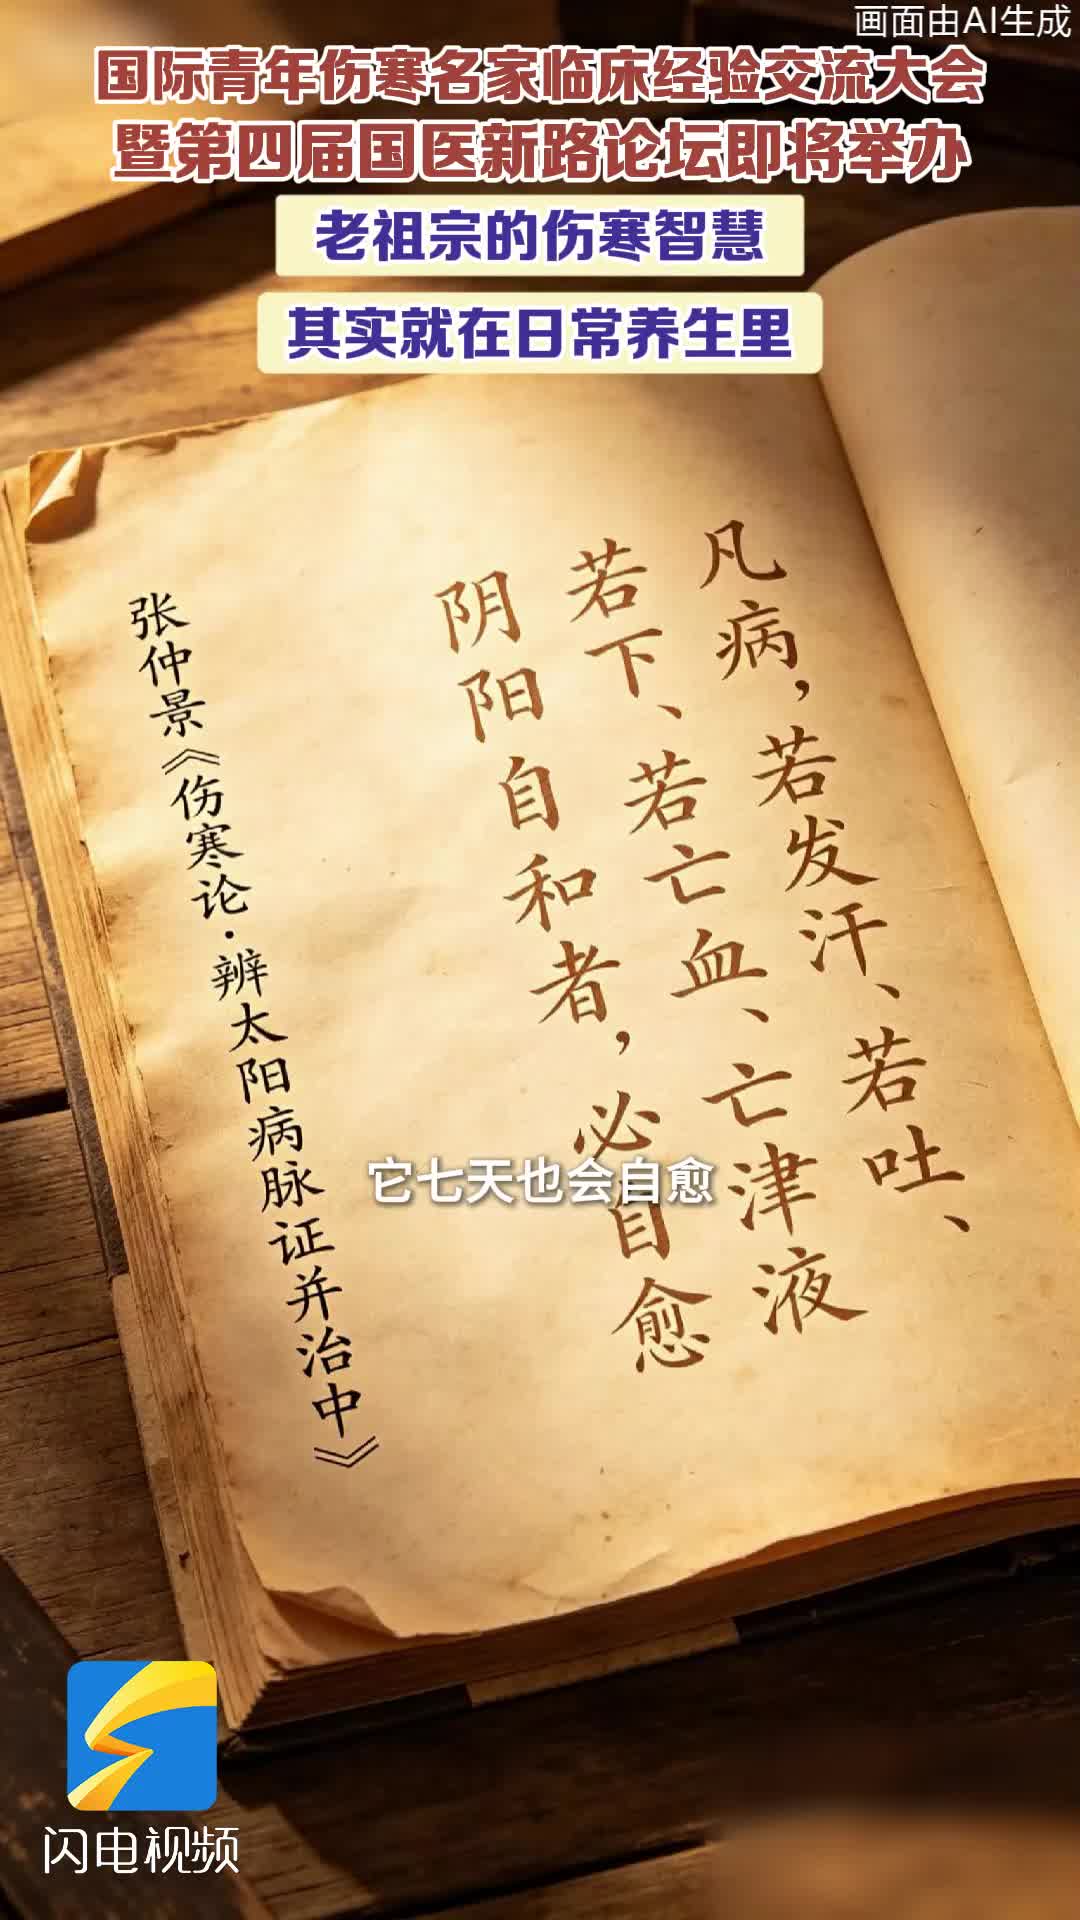 画面由AI生成
国际青年伤寒名家临床经验交流大会
暨第四届国医新路论坛即将举办
老祖宗的伤寒智慧
其实就在日常养生里
凡病，若发汗、若吐、
若下、若亡血、亡津液
阴阳自和者，必自愈
张仲景《伤寒论·辨太阳病脉证并治中》
它七天也会自愈
闪电视频